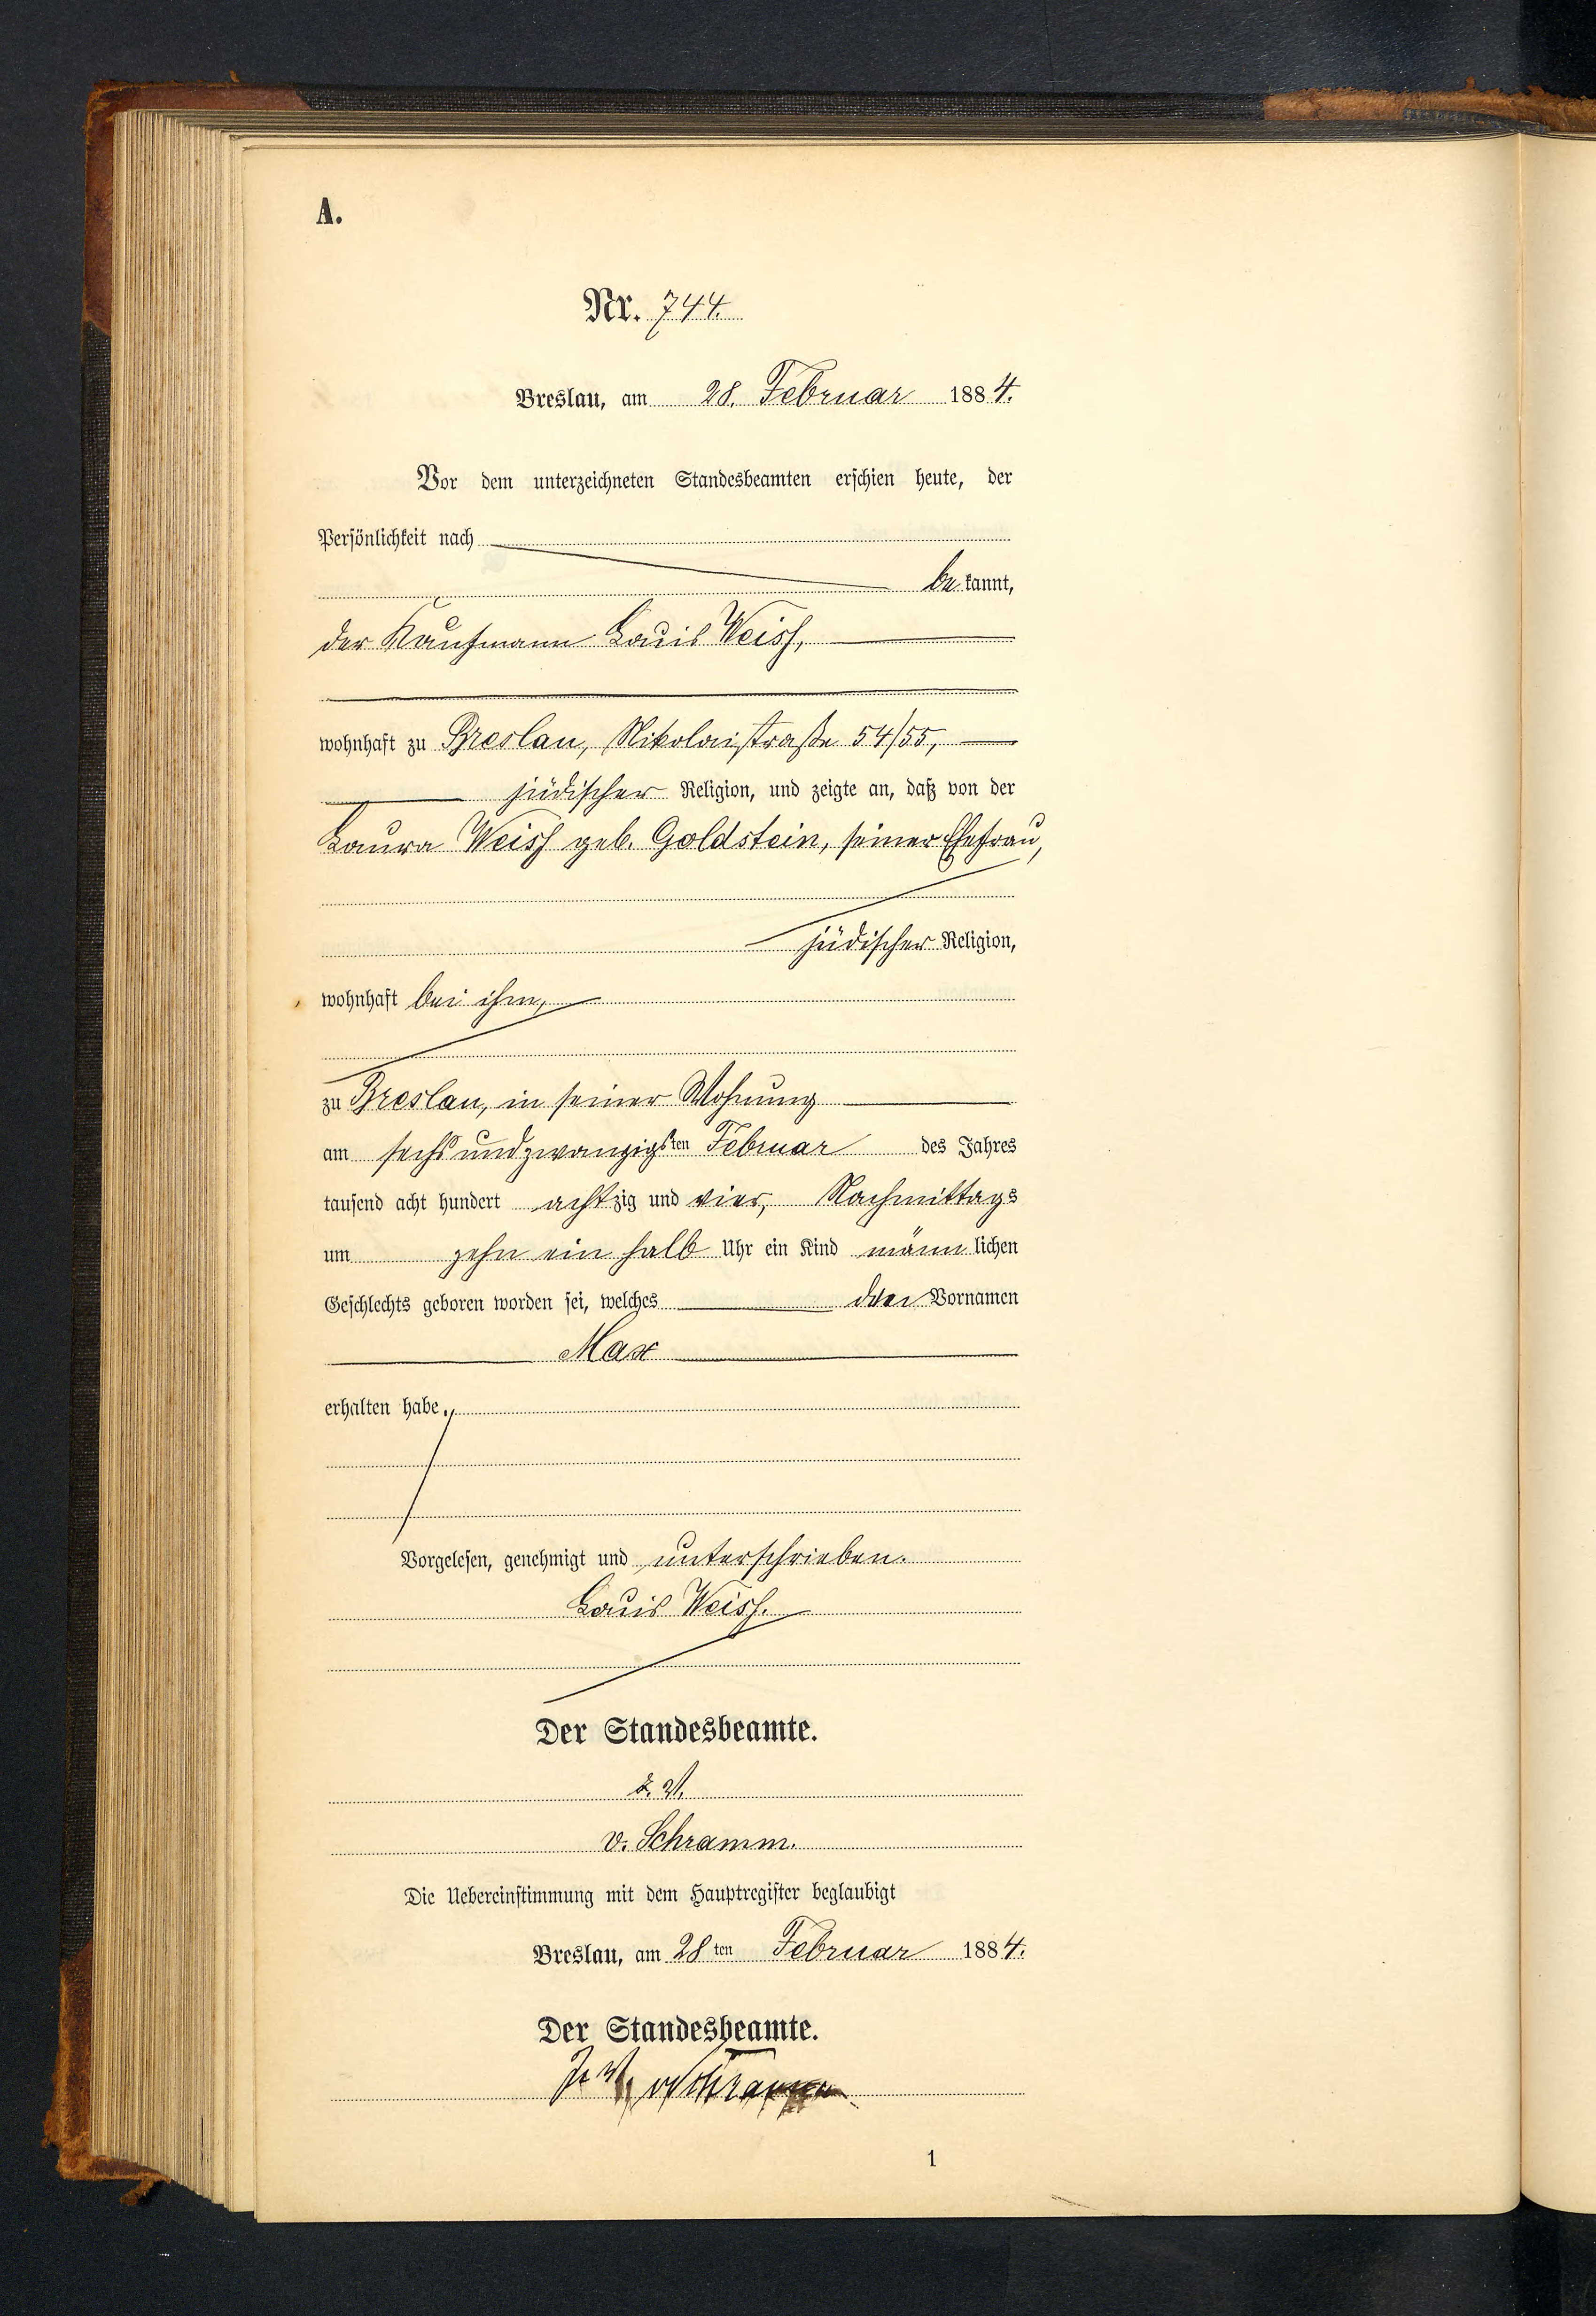 A.
Nr. 744.
Breslau, am 28. Februar 1884.
Vor dem unterzeichneten Standesbeamten erschien heute, der
Persönlichkeit nach
be kannt,
der Kaufmann Louis Weiss,
wohnhaft zu Breslau, Nikolaistraße 54/55,
jüdischer Religion, und zeigte an, daß von der
Laura Weiss geb. Goldstein, seiner Ehefrau,
jüdischer Religion,
wohnhaft bei ihm,
zu Breslau, in seiner Wohnung
am sechs und zwanzigsten Februar des Jahres
tausend acht hundert achtzig und vier, Nachmittags
um zehn ein halb Uhr ein Kind männlichen
Geschlechts geboren worden sei, welches den Vornamen
Max
erhalten habe.
Vorgelesen, genehmigt und unterschrieben.
Louis Weiss.
Der Standesbeamte.
v. Schramm.
Die Uebereinstimmung mit dem Hauptregister beglaubigt
Breslau, am 28 ten Februar 1884.
Der Standesbeamte.
v Schramm
1